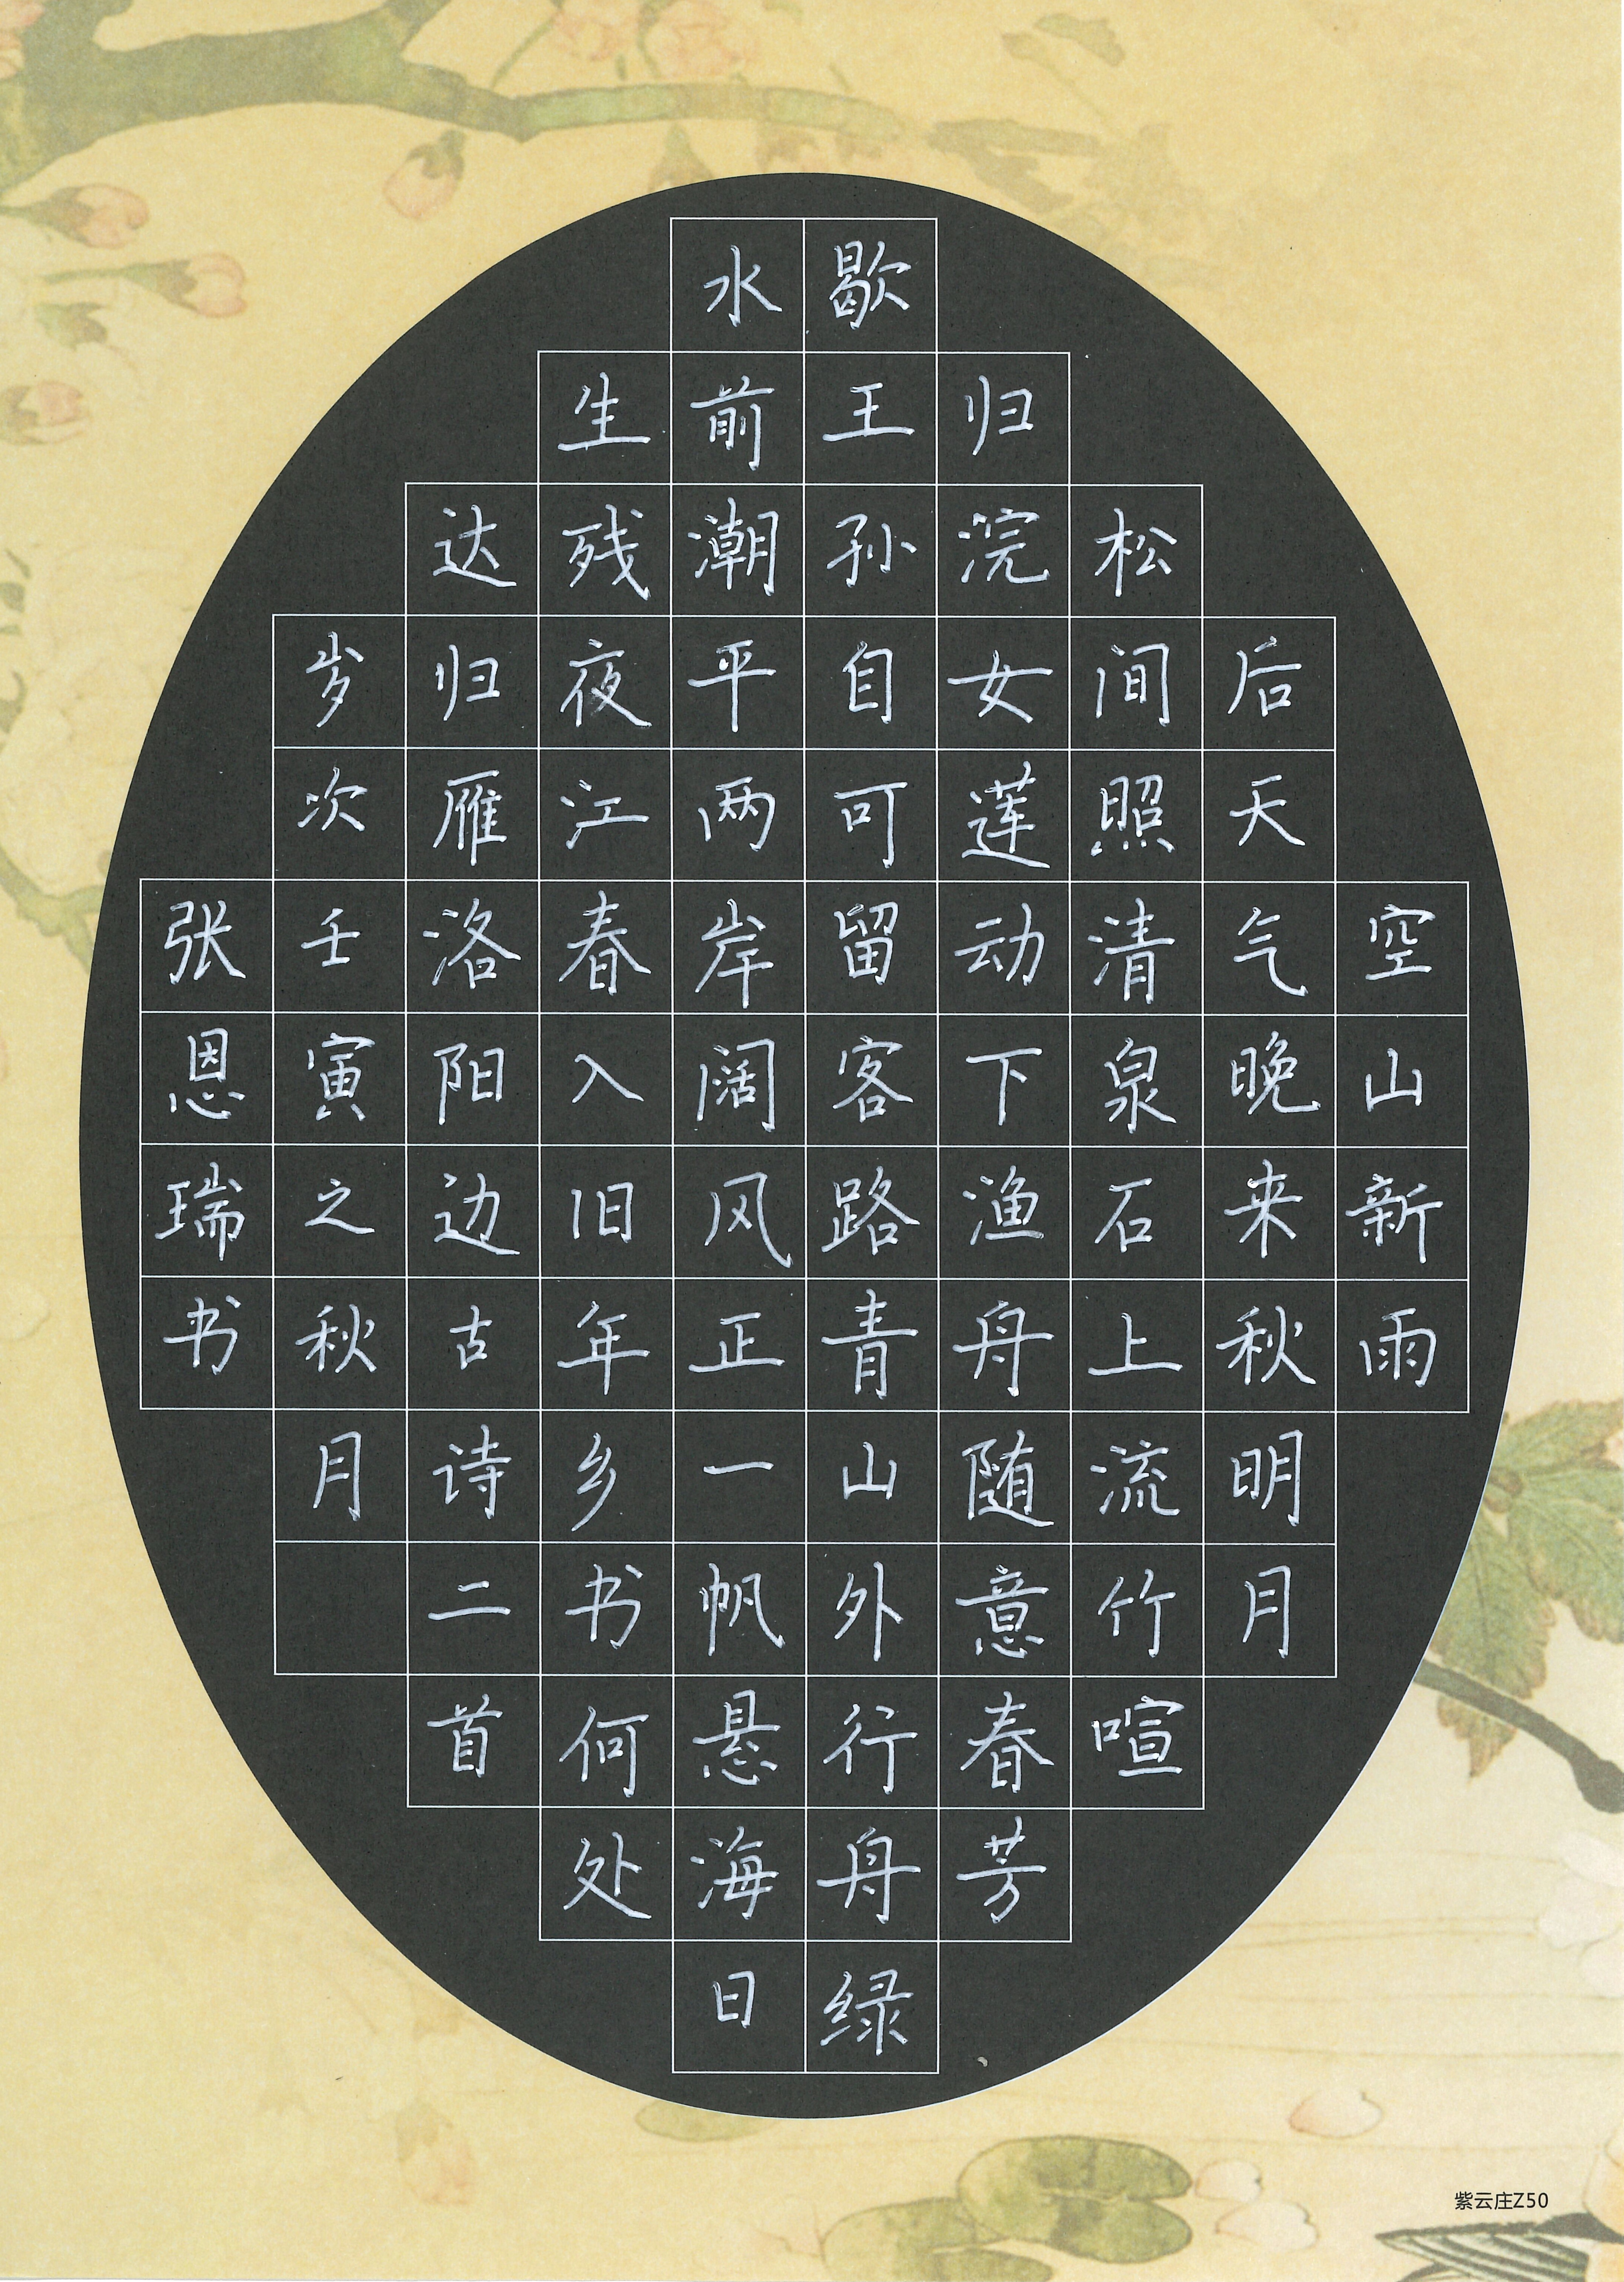 空山新雨
后天气晚来秋明月
松间照清泉石上流竹喧
归浣女莲动下渔舟随意春芳
歇王孙自可留客路青山外行舟绿
水前潮平两岸阔风正一帆悬海日
生残夜江春入旧年乡书何处
达归雁洛阳边古诗二首
岁次壬寅之秋月
张恩瑞书
紫云庄Z50